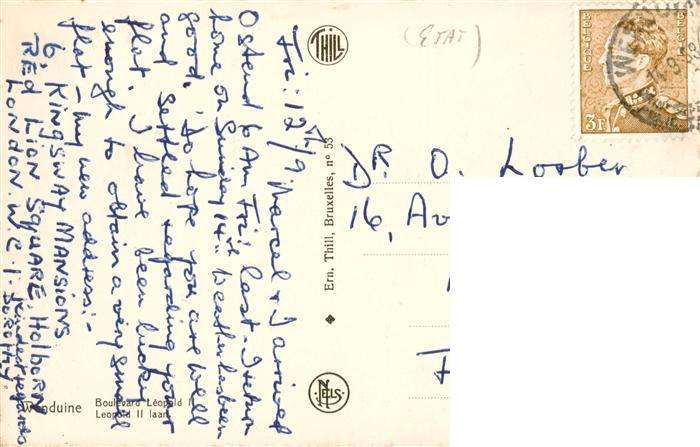 Fri: 12th/9. Marcel & I arrived
Ostend 6 Am Fri: last. I return
home on Sunday 14th. Weather has been
good. Do hope you are well
and settled regarding your
flat. I have been lucky
enough to obtain a very small
flat - my new address:-
6, KINGSWAY MANSIONS
RED LION SQUARE, Holborn
LONDON. W.C.1.
Kindest regards
DOROTHY.
Wenduine
Boulevard Léopold II
Leopold II laan
THILL
Ern. Thill, Bruxelles, n° 53
NELS
(ETAT)
BELGIE
BELGIQUE
3F
Dr. O. Loober
16, Av